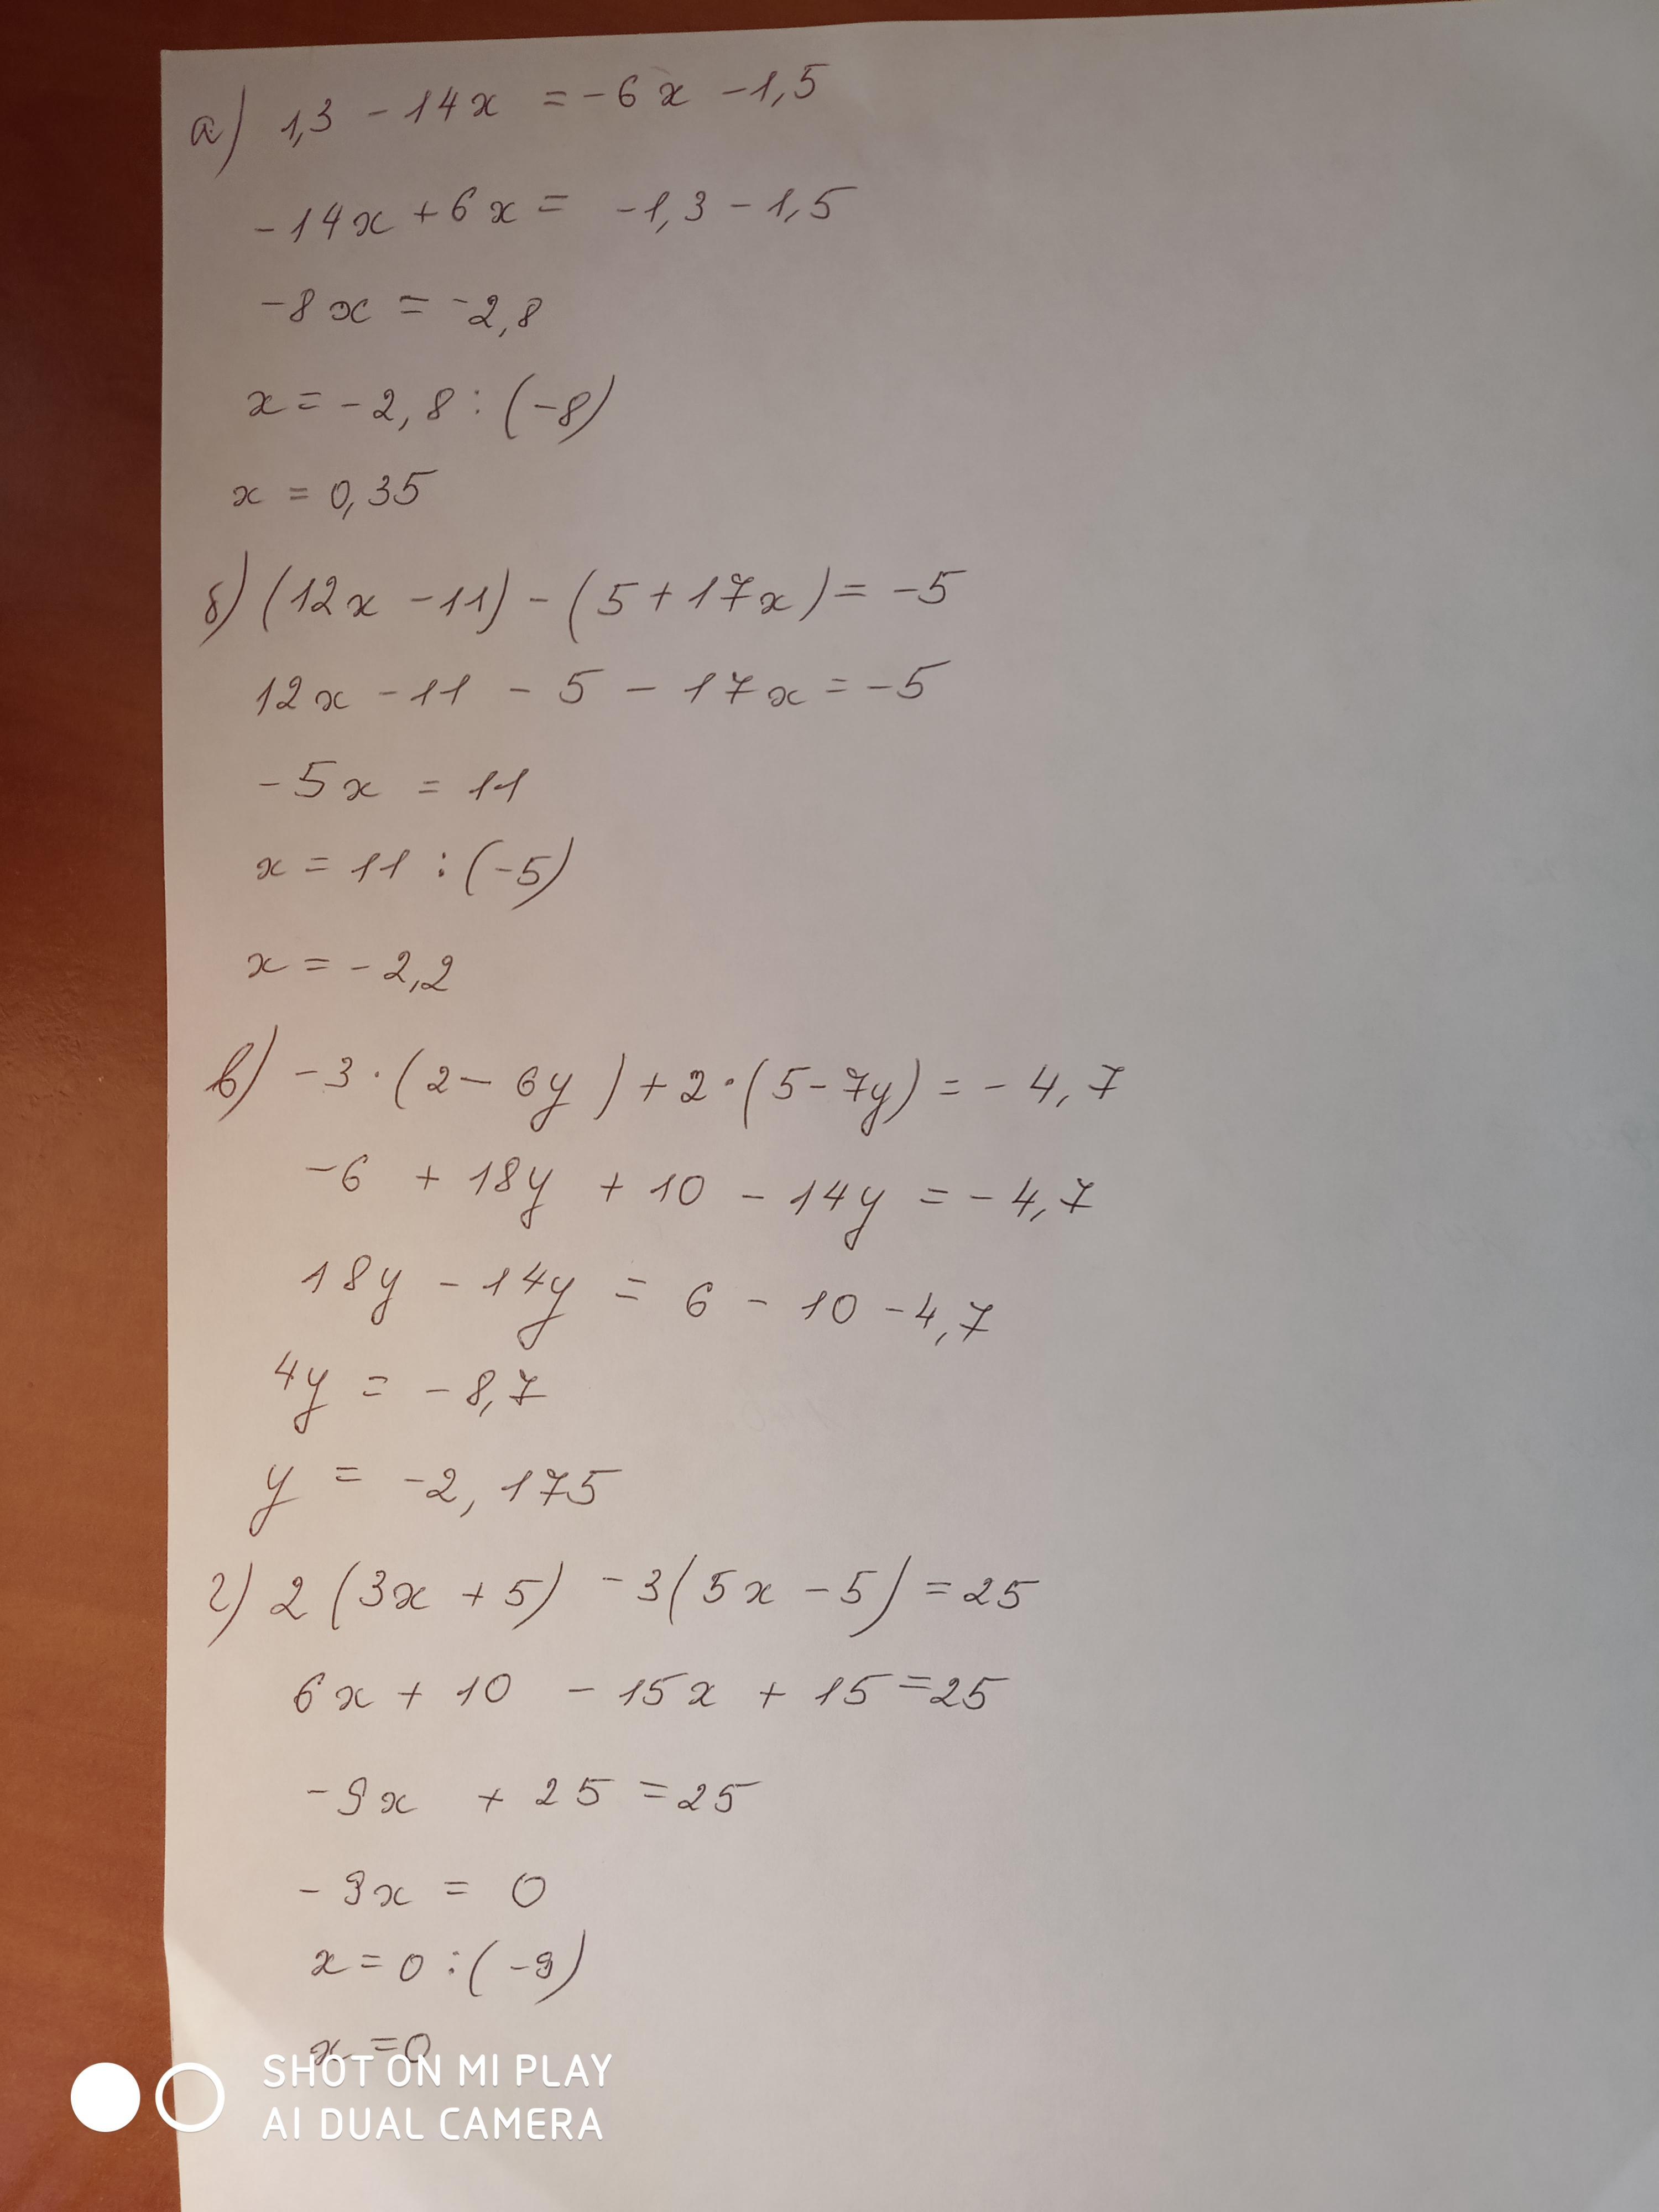 а) 1,3 - 14x = -6x - 1,5
-14x + 6x = -1,3 - 1,5
-8x = -2,8
x = -2,8 : (-8)
x = 0,35
б) (12x - 11) - (5 + 17x) = -5
12x - 11 - 5 - 17x = -5
-5x = 11
x = 11 : (-5)
x = -2,2
в) -3 · (2 - 6y) + 2 · (5 - 7y) = -4,7
-6 + 18y + 10 - 14y = -4,7
18y - 14y = 6 - 10 - 4,7
4y = -8,7
y = -2,175
г) 2 (3x + 5) - 3(5x - 5) = 25
6x + 10 - 15x + 15 = 25
-9x + 25 = 25
-9x = 0
x = 0 : (-9)
x = 0
SHOT ON MI PLAY
AI DUAL CAMERA